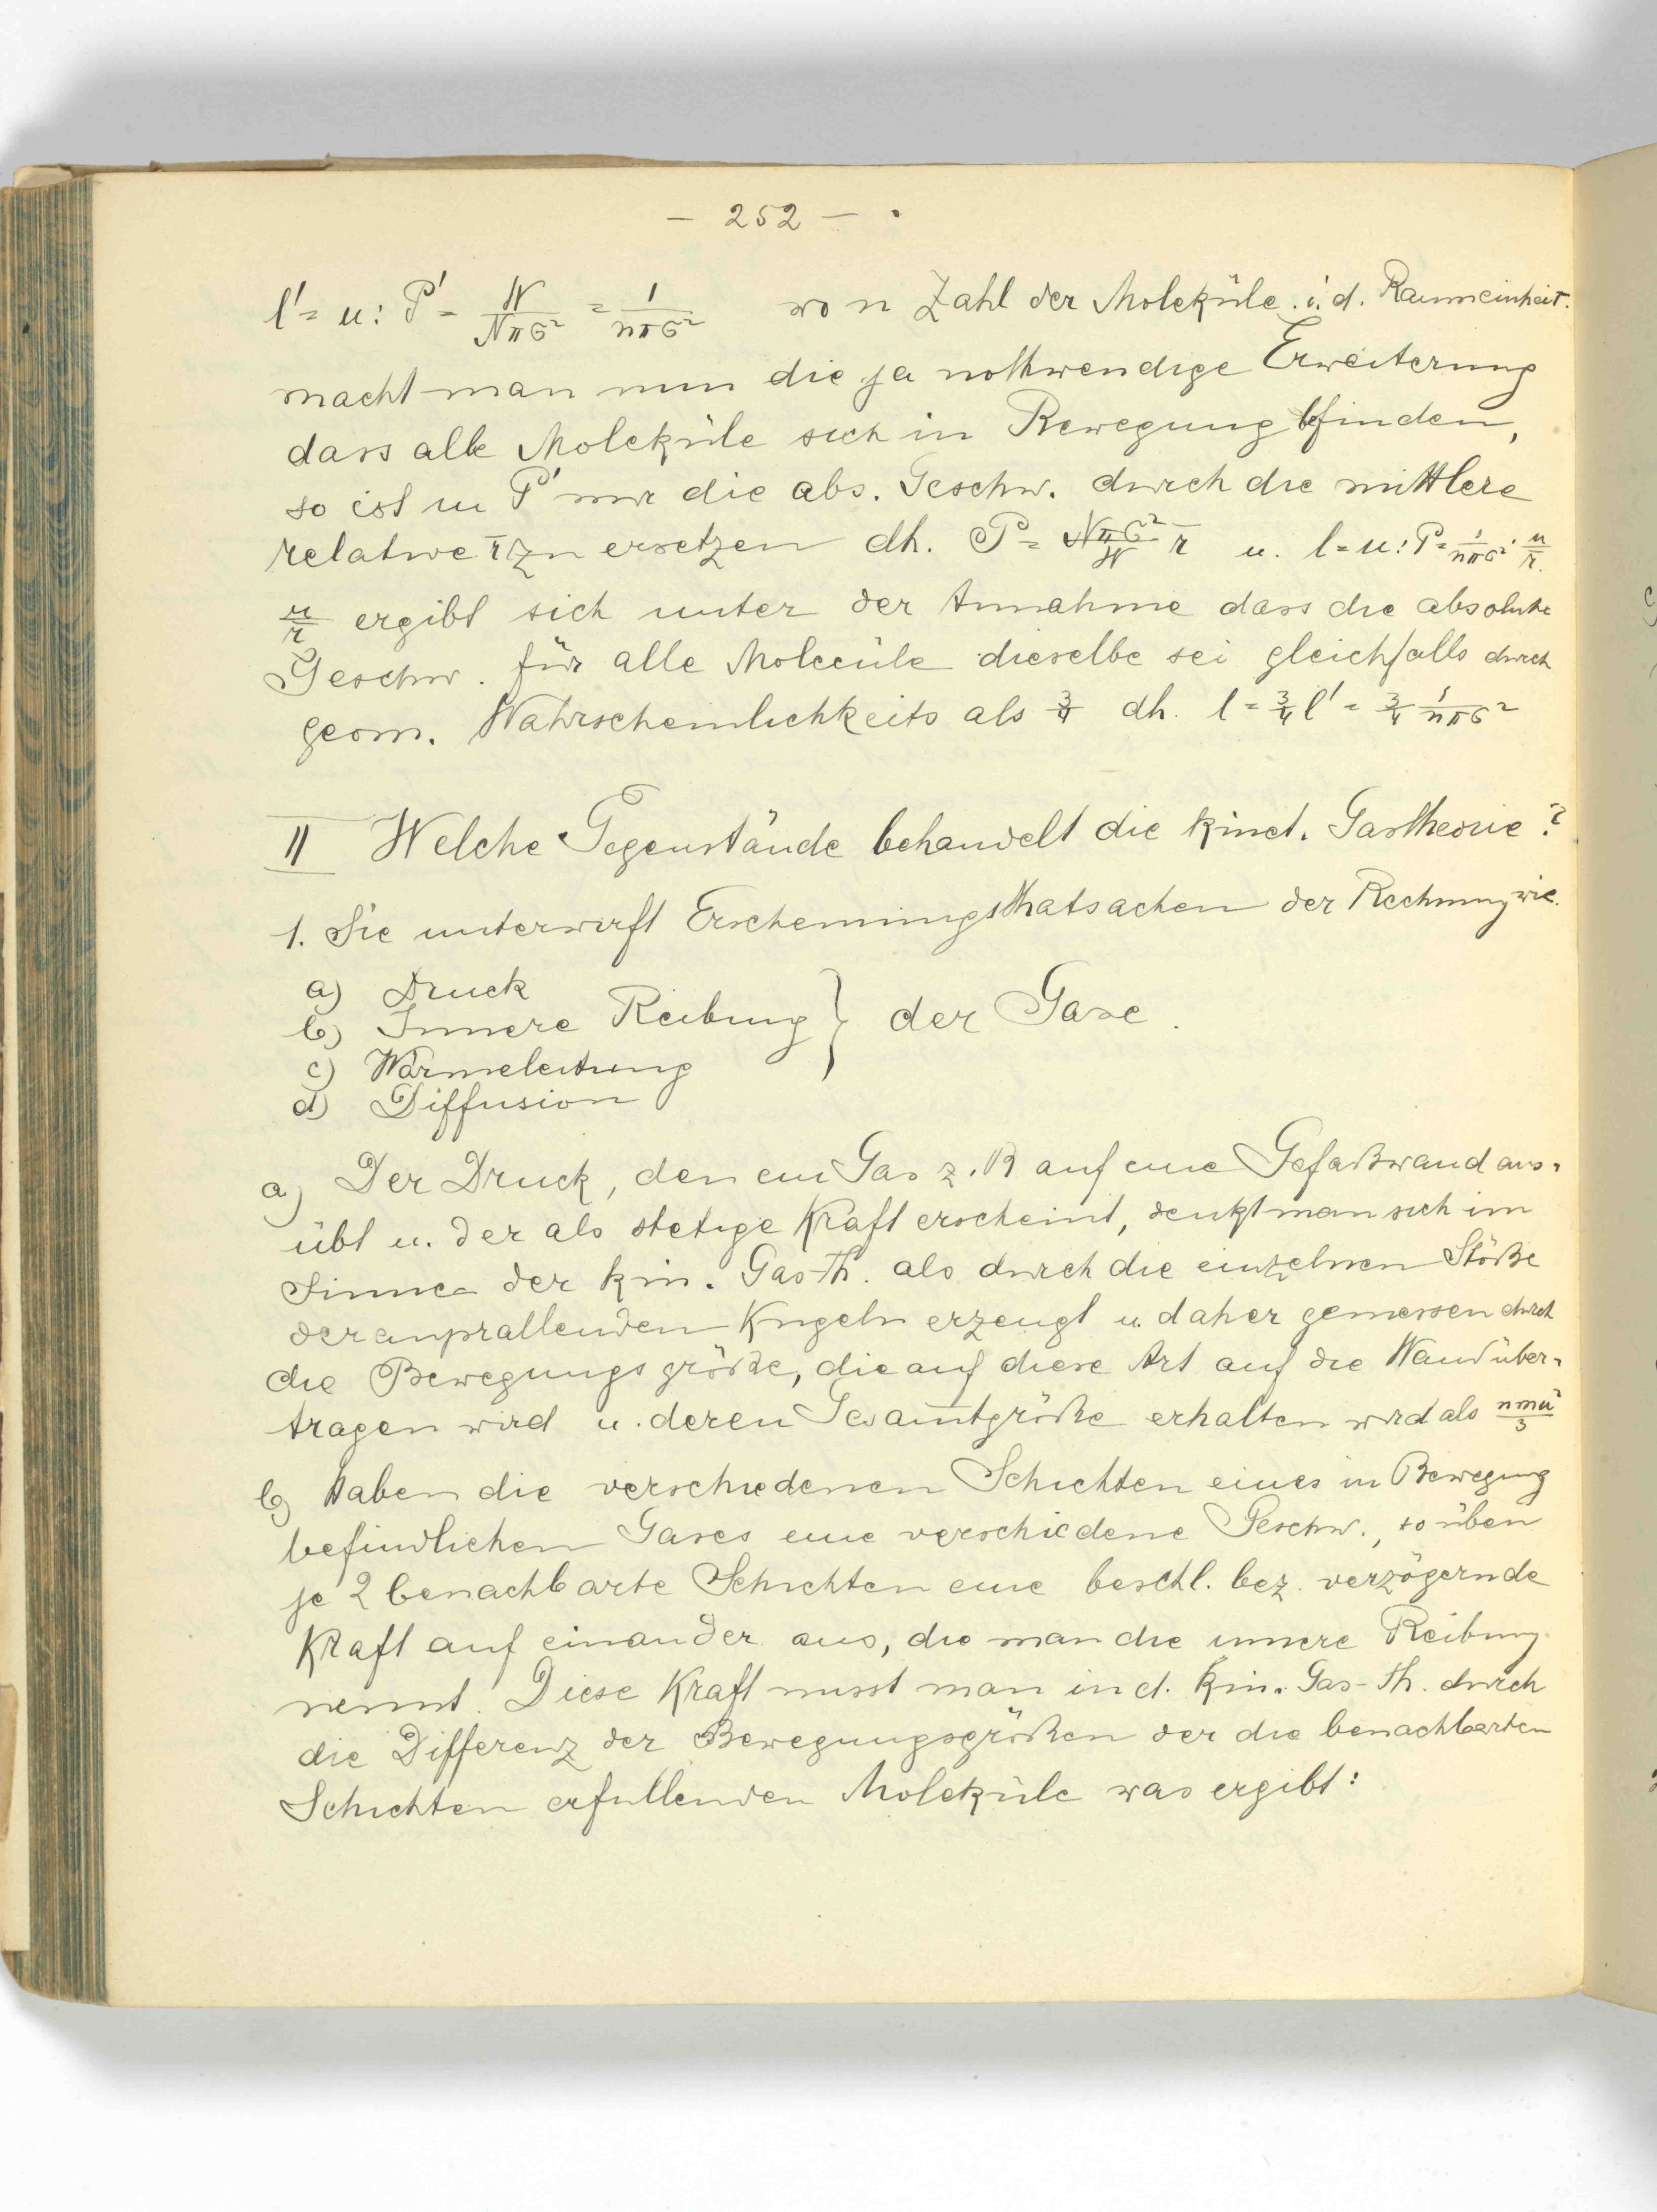 – 252 – .
l' = u : P' = W/Nπσ² = 1/nπσ² wo n Zahl der Moleküle i. d. Raumeinheit.
macht man nun die ja nothwendige Erweiterung
dass alle Moleküle sich in Bewegung befinden,
so ist in P' nur die abs. Geschw. durch die mittlere
relative r̄ zu ersetzen dh. P = Nπσ²/W r̄ u. l = u : P = 1/nπσ² · u/r̄.
u/r̄ ergibt sich unter der Annahme dass die absolute
Geschw. für alle Molecüle dieselbe sei gleichfalls durch
geom. Wahrscheinlichkeits als 3/4 dh. l = 3/4 l' = 3/4 1/nπσ²
II Welche Gegenstände behandelt die kinet. Gastheorie?
1. Sie unterwirft Erscheinungsthatsachen der Rechnung wie.
a) Druck
b) Innere Reibung } der Gase.
c) Wärmeleitung
d) Diffusion
a) Der Druck, den ein Gas z. B auf eine Gefaßwand aus-
übt u. der als stetige Kraft erscheint, denkt man sich im
Sinne der kin. Gas-Th. als durch die einzelnen Stöße
der anprallenden Kugeln erzeugt u. daher gemessen durch
die Bewegungsgröße, die auf diese Art auf die Wand über-
tragen wird u. deren Gesam̅tgröße erhalten wird als nmu²/3
b) Haben die verschiedenen Schichten eines in Bewegung
befindlichen Gases eine verschiedene Geschw., so üben
je 2 benachbarte Schichten eine beschl. bez. verzögernde
Kraft auf einander aus, die man die innere Reibung
nennt. Diese Kraft misst man in d. kin. Gas-Th. durch
die Differenz der Bewegungsgrößen der die benachbarten
Schichten erfüllenden Moleküle was ergibt: